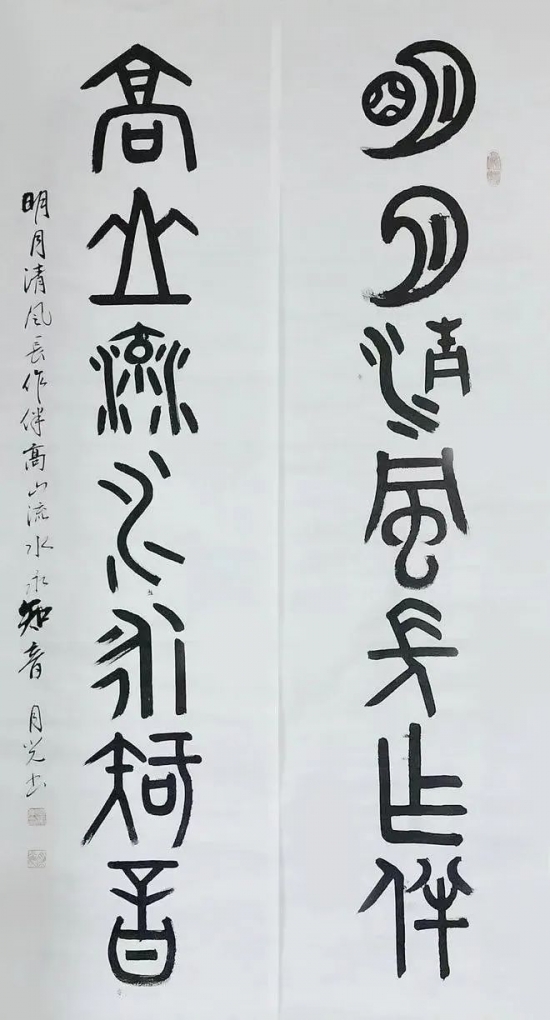 明月清風長作伴
高山流水永知音
明月清风長作伴高山流水永知音 月光书